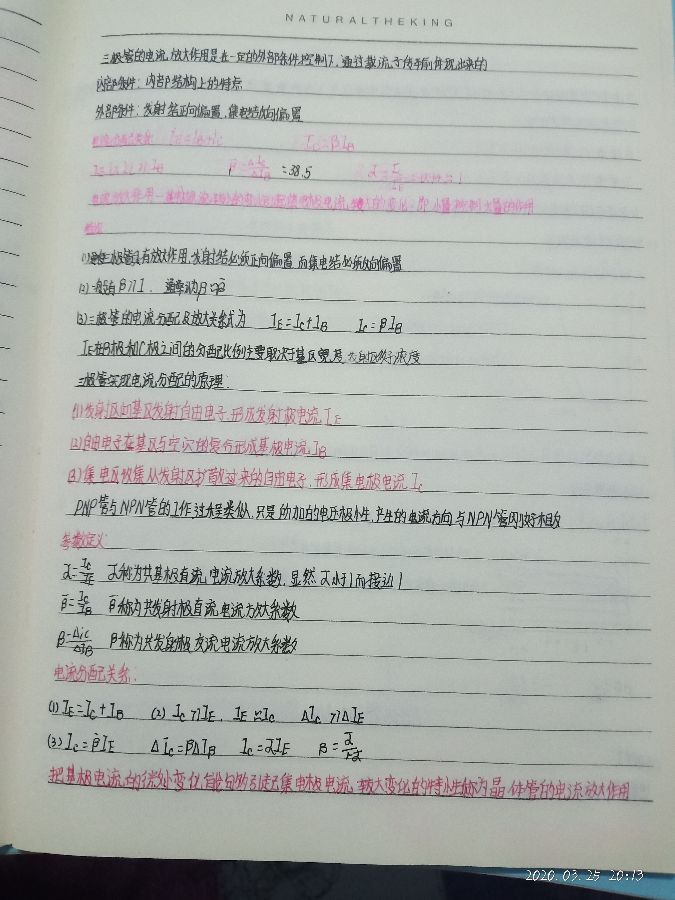 NATURALTHEKING
三极管的电流放大作用是在一定的外部条件控制下，通过载流子传输体现出来的
内部条件：内部结构上的特点
外部条件：发射结正向偏置，集电结反向偏置
电流分配关系： IE=IB+IC IC=βIB
β̄=ΔIC/ΔIB=38.5
(1)三极管具有放大作用，发射结必须正向偏置，而集电结必须反向偏置
(2)一般有β>>1，通常认为β≈β̄
(3)三极管的电流分配及放大关系式为 IE=IC+IB IC=βIB
IE在B极和C极之间的分配比例主要取决于基区宽度
三极管实现电流分配的原理：
(1)发射区向基区发射自由电子，形成发射极电流IE
(2)自由电子在基区与空穴的复合形成基极电流IB
(3)集电区收集从发射区扩散过来的自由电子，形成集电极电流IC
PNP管与NPN管的工作过程类似，只是所加的电压极性，产生的电流方向与NPN管刚好相反
参数定义：
ᾱ=IC/IE ᾱ称为共基极直流电流放大系数，显然ᾱ小于1而接近1
β̄=IC/IB β̄称为共发射极直流电流放大系数
β=ΔiC/ΔiB β称为共发射极交流电流放大系数
电流分配关系：
(1)IE=IC+IB (2)IC≈IE，IE≈IC ΔIC≈ΔIE
(3)IC=β̄IE ΔiC=βΔIB IC=ᾱIE
把基极电流的微小变化能够引起集电极电流较大变化的特性称为晶体管的电流放大作用
2020.03.25 20:13